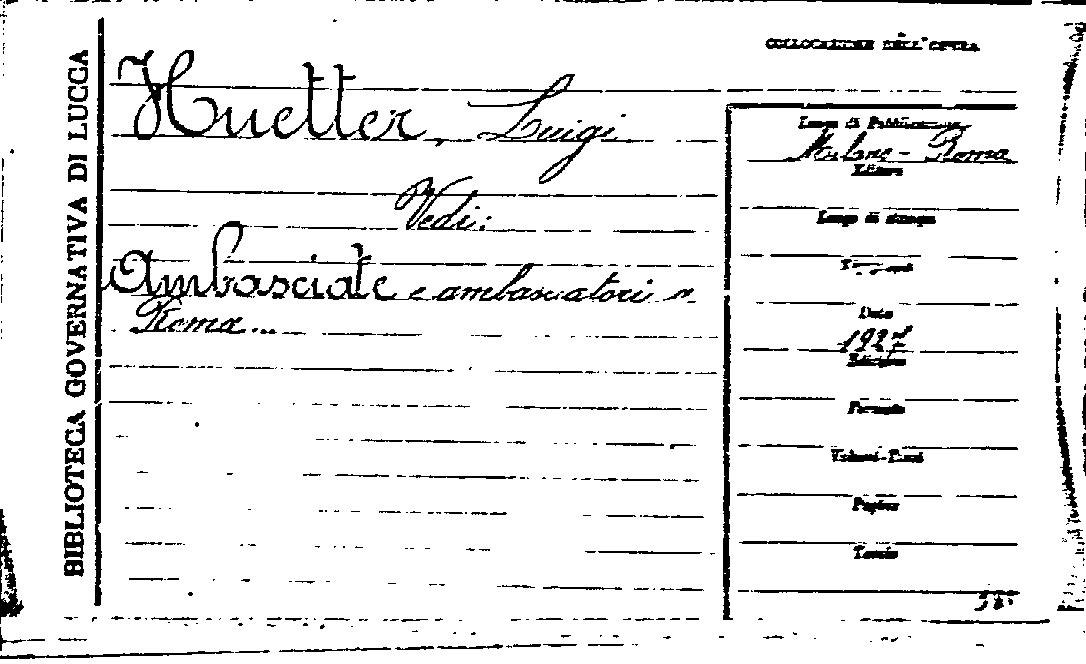 BIBLIOTECA GOVERNATIVA DI LUCCA
COLLOCAZIONE DELL'OPERA
Huetter, Luigi
Vedi:
Ambasciate e ambasciatori a
Roma...
Luogo di Pubblicazione
Milano - Roma
Editore
Luogo di stampa
Data
1927
Edizione
Formato
Volumi-Pezzi
Pagine
Tomie